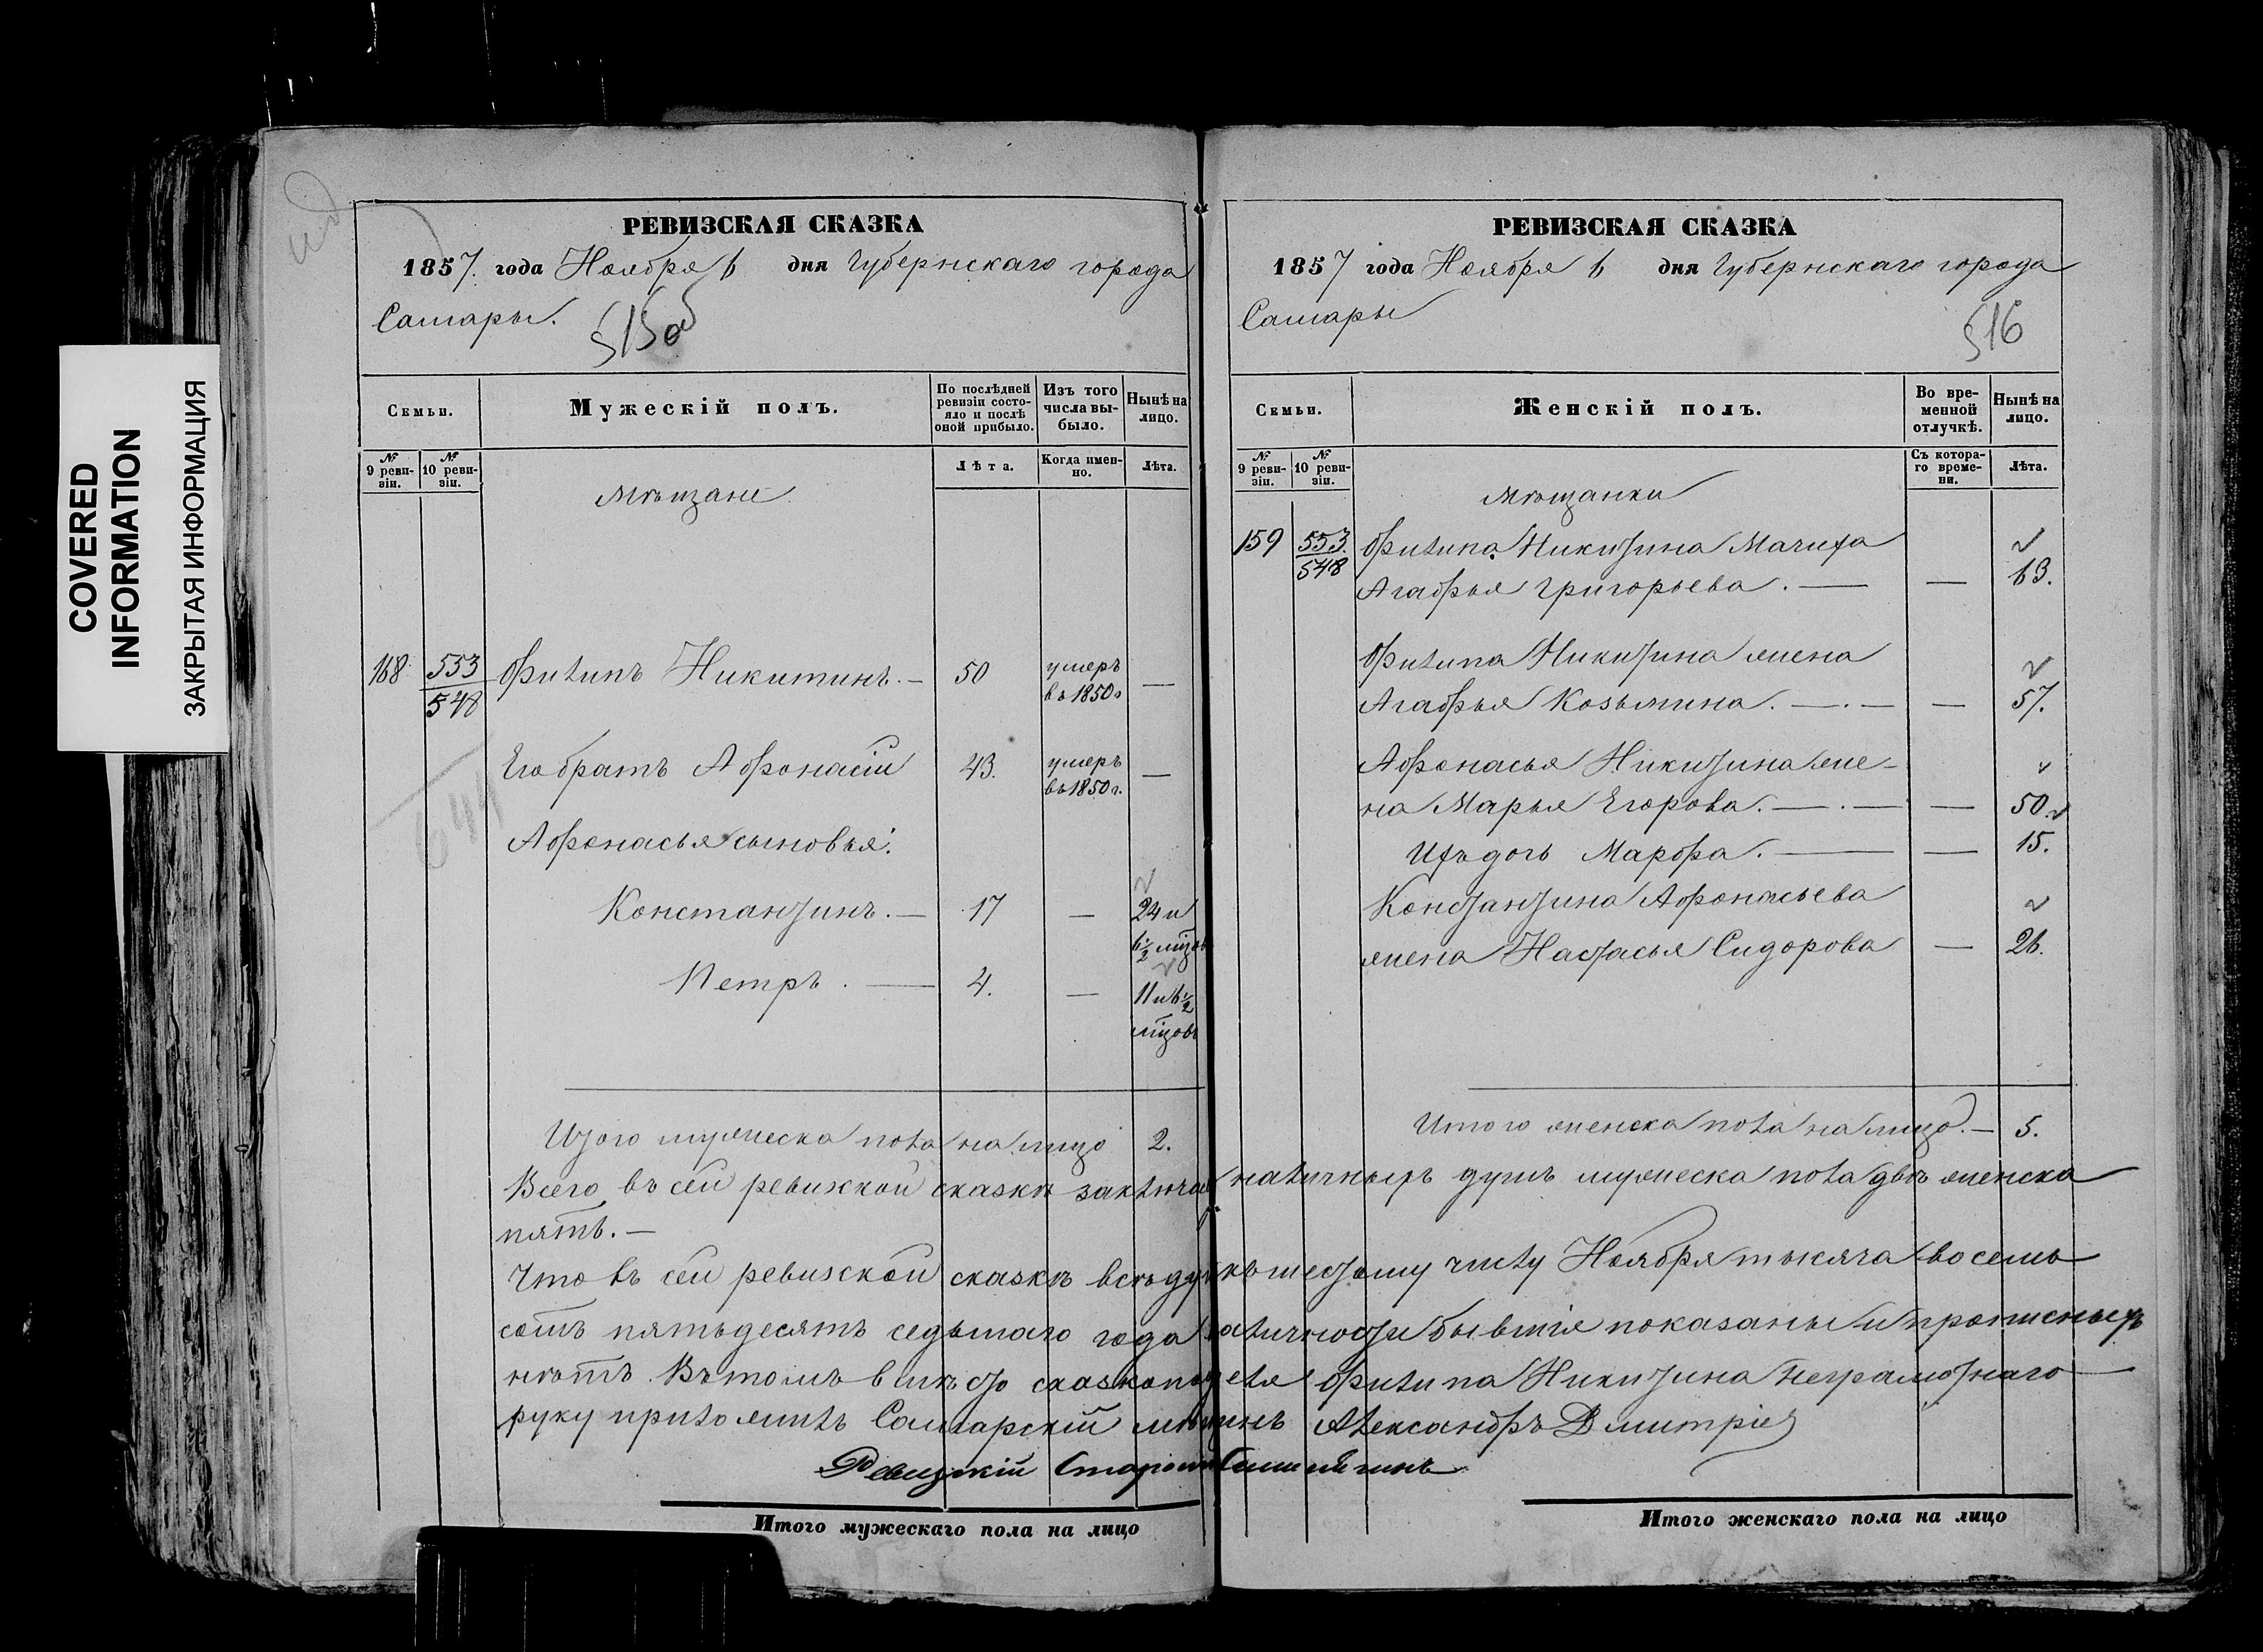 COVERED
INFORMATION
ЗАКРЫТАЯ ИНФОРМАЦИЯ
РЕВИЗСКАЯ СКАЗКА
1857. года Ноября 6 дня Губернскаго города
Самары.
515об
Семьи.
Мужескій полъ.
По послѣдней ревизіи состояло и послѣ оной прибыло.
Изъ того числа выбыло.
Нынѣ на лицо.
№ 9 ревизіи.
№ 10 ревизіи.
Лѣта.
Когда именно.
Лѣта.
мѣщане
168 553/548 Филипъ Никитинъ. — 50 умеръ въ 1850 г —
Его братъ Афонасій 43. умеръ въ 1850 г. —
Афонасья сыновья:
Константинъ. — 17 — 24 и 6 1/2 мцовъ
Петръ. — 4. — 11 и 6 1/2 мцовъ
Итого мужеска пола на лицо 2.
РЕВИЗСКАЯ СКАЗКА
1857 года Ноября 6 дня Губернскаго города
Самары
516
Семьи.
Женскій полъ.
Во временной отлучкѣ.
Нынѣ на лицо.
№ 9 ревизіи.
№ 10 ревизіи.
Съ котораго времени.
Лѣта.
мѣщанки
159 553./548 Филипа Никитина Мачиха
Агафья Григорьева. — — 63.
Филипа Никитина жена
Агафья Козьмина. — . — — 57.
Афонасья Никитина же-
на Марья Егорова. — . — — 50
Ихъ дочь Марфа. — — 15.
Константина Афонасьева
жена Настасья Сидорова — 26.
Итого женска пола на лицо. — 5.
Всего въ сей ревизкой сказкѣ заключае наличныхъ душъ мужеска пола двѣ женска
пять. —
Что въ сей ревизской сказкѣ всѣ ду къ шестому числу Ноября тысяча восемь
сотъ пятьдесятъ седьмаго года наличности бывшіе показаны и прописныхъ
нѣтъ. Въ томъ вмѣсто сказкоподателя Филипа Никитина неграмотнаго
руку приложилъ Самарскій мѣщинъ Александръ Дмитріев
Ревизскій Старо
Итого мужескаго пола на лицо
Итого женскаго пола на лицо